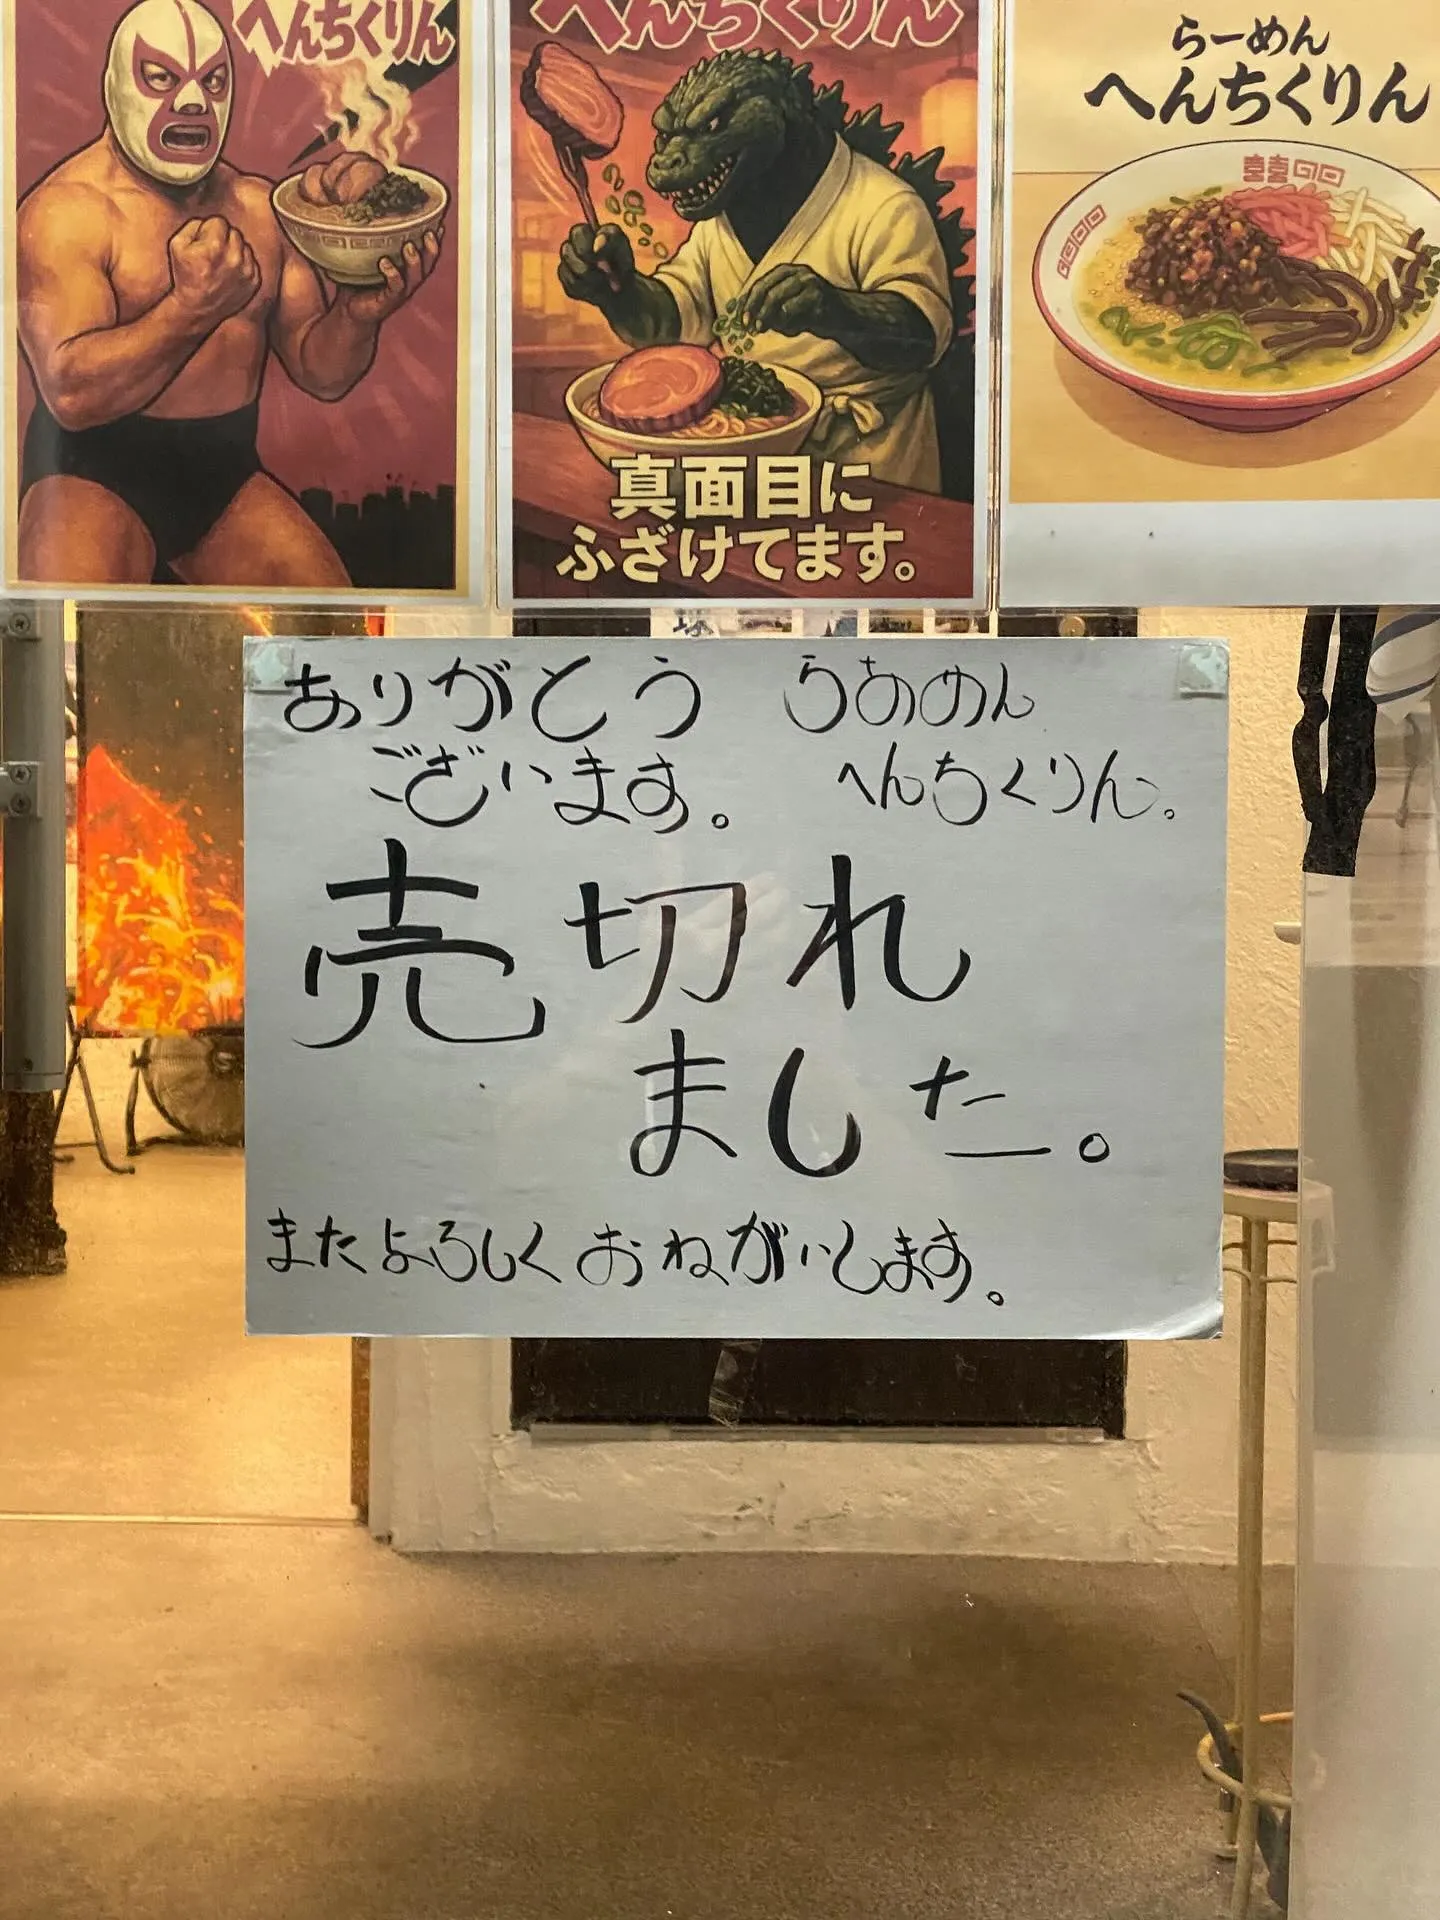 へんちくりん
へんちくりん
真面目に
ふざけてます。
らーめん
へんちくりん
ありがとう
ございます。
らあめん
へんちくりん。
売切れ
ました。
またよろしくおねがいします。